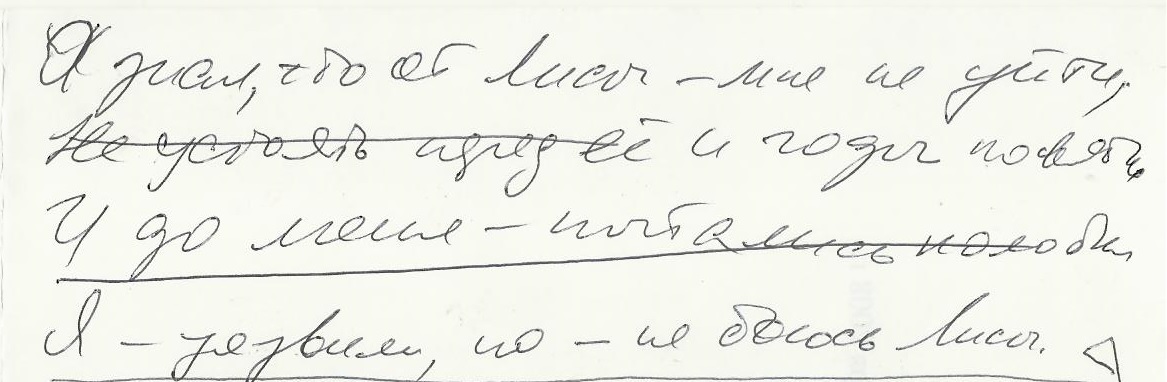 Я знал, что от Лисы – мне не уйти,
Не устоять пред её и годы
И до меня – пытались колобки
Я – уязвим, но – не боюсь Лисы.